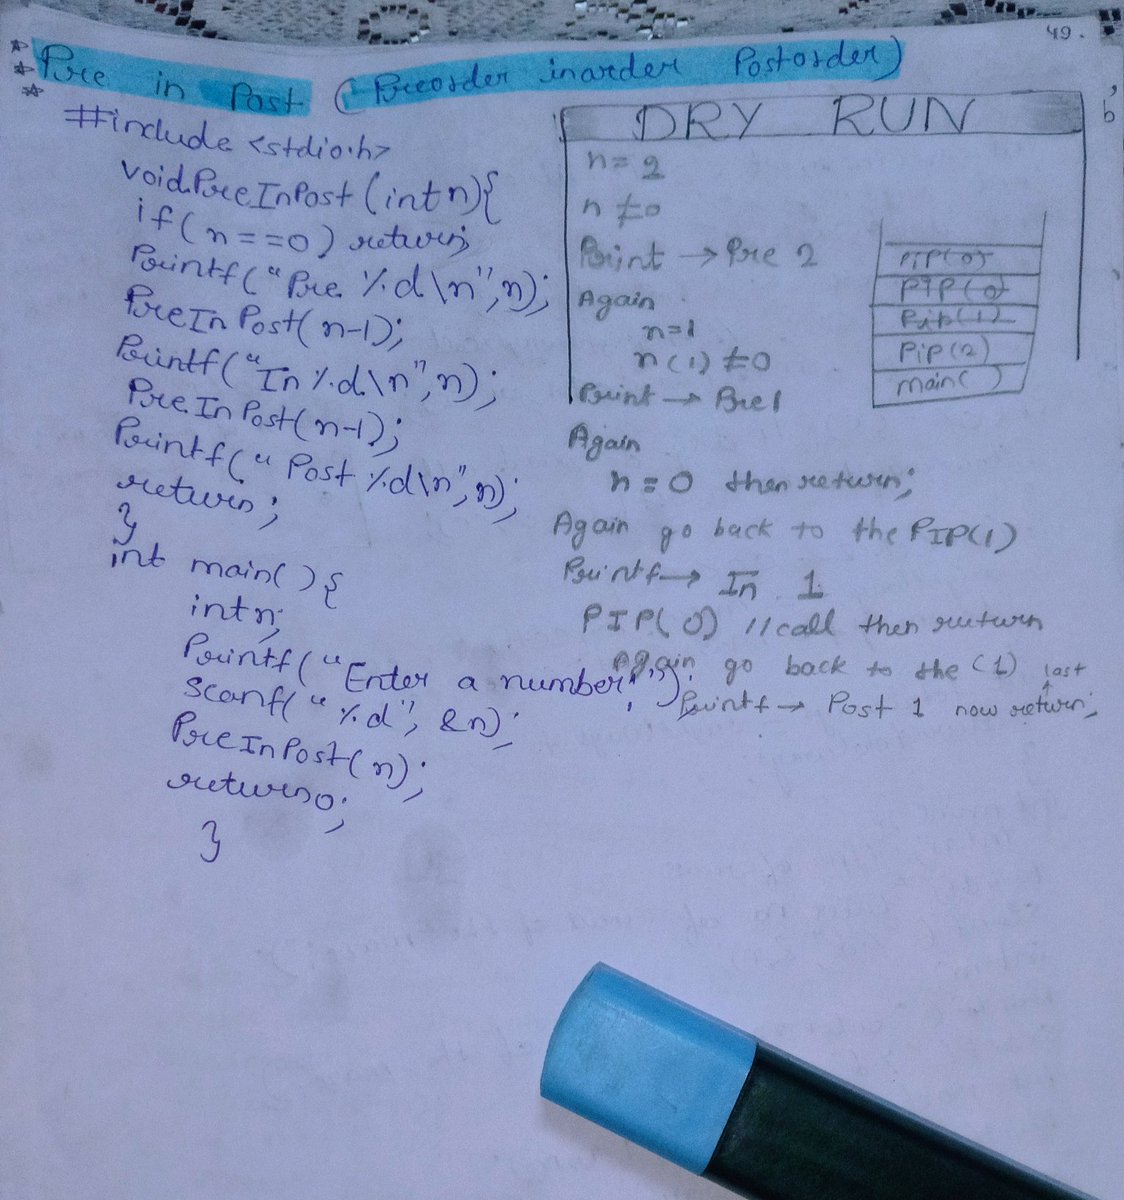 49.
Pre in Post (Preorder inorder Postorder)
#include <stdio.h>
void PreInPost (int n){
if(n==0) return;
Printf("Pre %d\n",n);
PreInPost(n-1);
Printf("In %d\n",n);
PreInPost(n-1);
Printf("Post %d\n",n);
return;
}
int main(){
int n;
Printf("Enter a number:");
scanf("%d", &n);
PreInPost(n);
return 0;
}
DRY RUN
n=2
n≠0
Print → Pre 2
Again
n=1
n(1) ≠0
Print → Pre 1
Again
n=0 then return;
Again go back to the PIP(1)
Printf → In 1
PIP(0) //call then return
Again go back to the (1) last
Printf → Post 1 now return;
PIP(0)
PIP(0)
Pip(1)
PiP(2)
main()